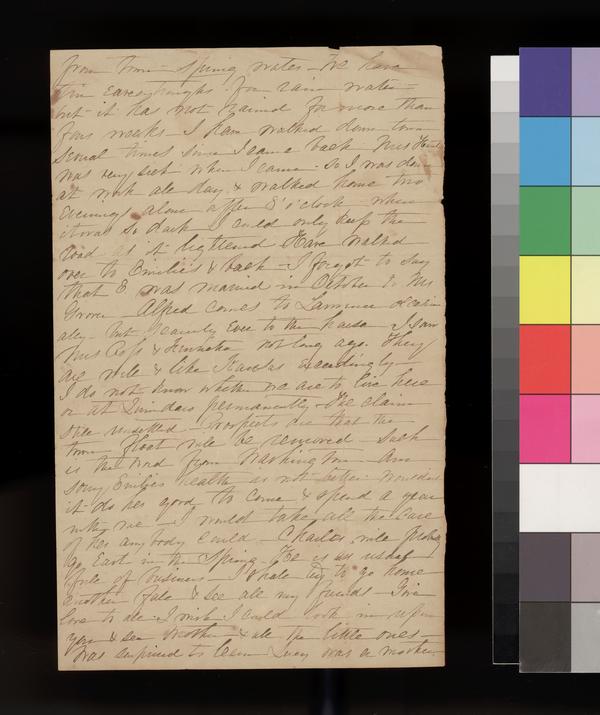 from town - Spring water - We have
tin eavestroughs for rain water -
but it has not rained for more than
four weeks - I have walked down town
several times since I came back Mrs
was very sick when I came - So I was down
at work all day, & walked home two
evenings alone after 8 o'clock - when
it was so dark I could only keep the
road as it lightened Have walked
over to Emilie's & back - I forgot to say
that E was married in October to Mr
Grover - Alfred comes to Lawrence occasion
ally - but scarcely ever to the house - I saw
Mrs Ross & Hannah not long ago. They
are well & like Kansas exceedingly -
I do not know whether we are to live here
or at permanently - The claim
still unsettled - Prospects are that the
town float will be removed - Such
is the word from Washington - Am
sorry Emilie's health is not better. Wouldn't
it do her good to come & spend a year
with me - I would take all the care
of her any body could - Charles will probably
go East in the Spring - He is as usual
full of business - I shall try to go home
another fall & see all my friends - Give
love to all - I wish I could look in upon
you & see Mother & all the little ones -
Was surprised to learn Lucy was a mother.